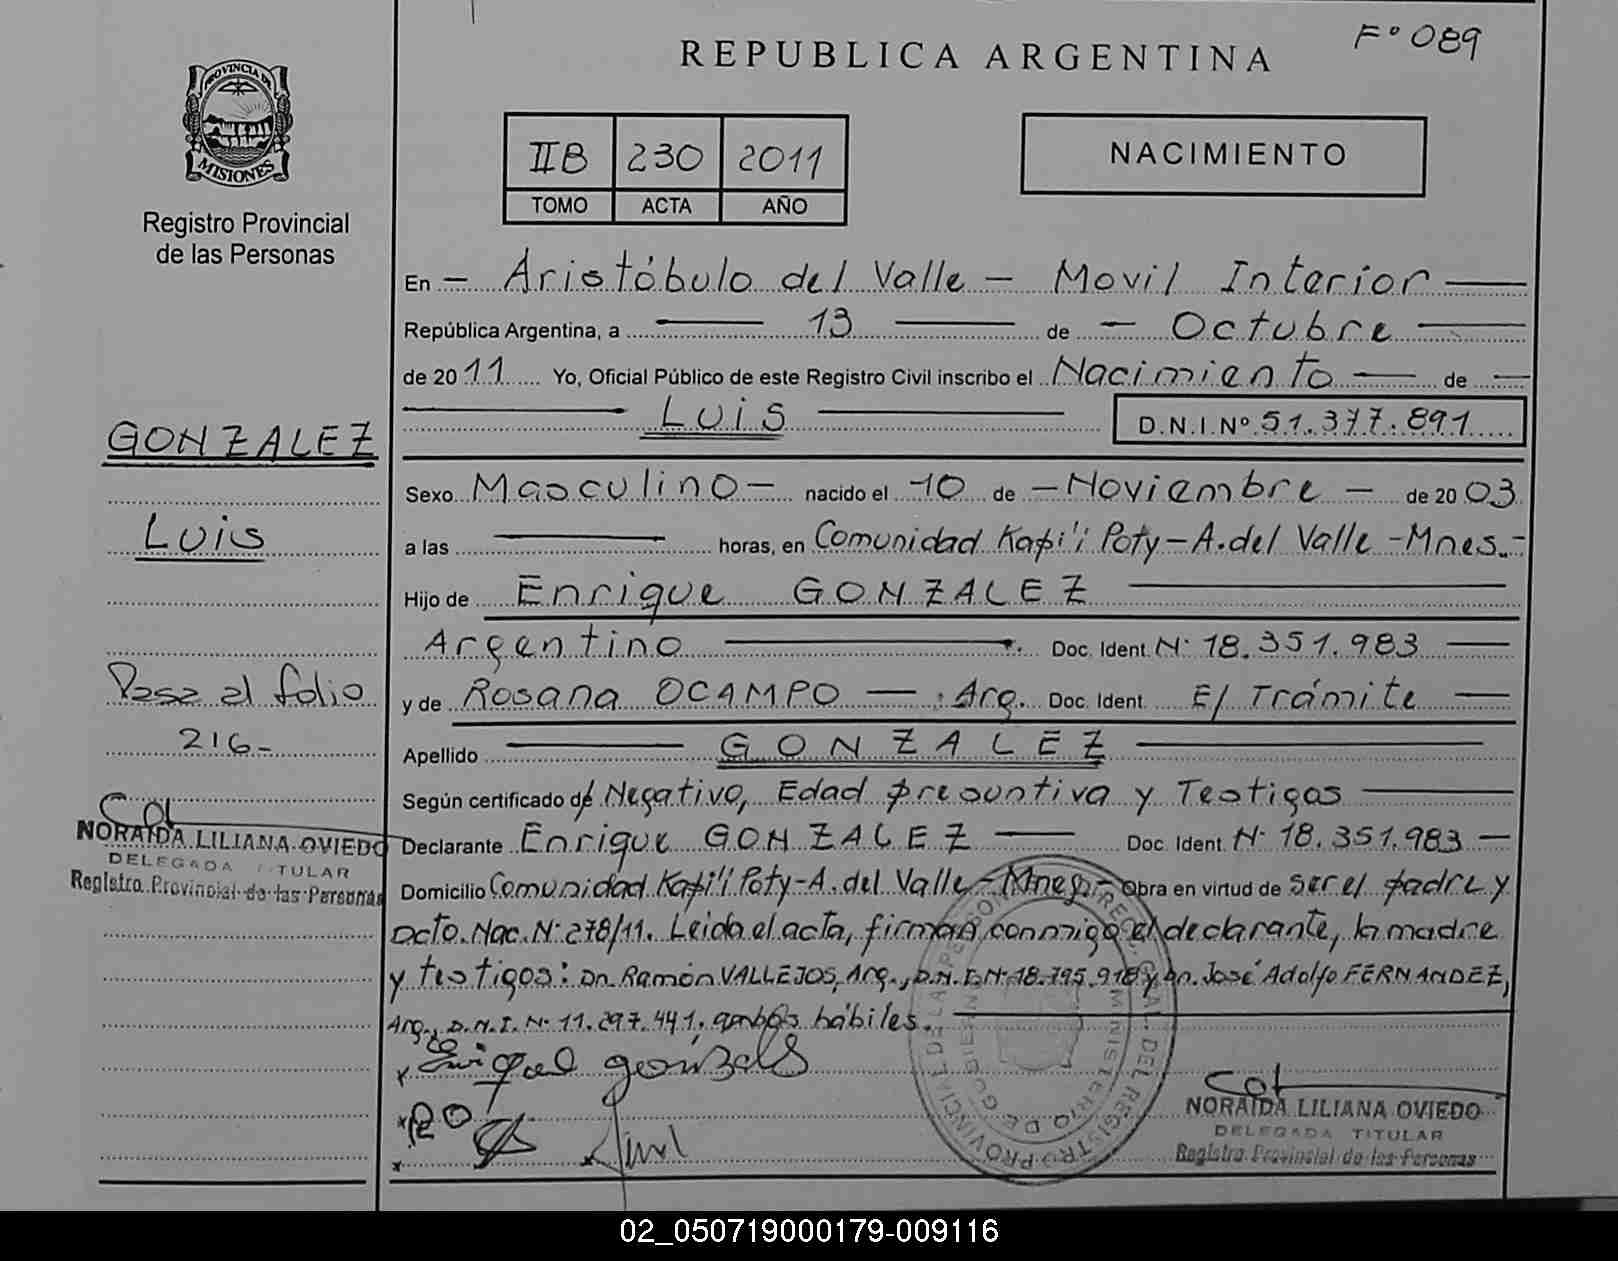 F° 089
REPUBLICA ARGENTINA
PROVINCIA DE
MISIONES
Registro Provincial
de las Personas
IIB 230 2011
TOMO ACTA AÑO
NACIMIENTO
En - Aristóbulo del Valle - Movil Interior
República Argentina, a 13 de - Octubre
de 2011 Yo, Oficial Público de este Registro Civil inscribo el Nacimiento de
Luis
D.N.I. Nº 51.377.891
GONZALEZ
Luis
Pasa al folio
216-
NORAIDA LILIANA OVIEDO
DELEGADA TITULAR
Registro Provincial de las Personas
Sexo Masculino - nacido el 10 de - Noviembre - de 2003
a las horas, en Comunidad Kapi'i Poty - A. del Valle - Mnes.-
Hijo de Enrique GONZALEZ
Argentino Doc. Ident. N° 18.351.983
y de Rosana OCAMPO - Arg. Doc. Ident. E/ Trámite
Apellido GONZALEZ
Según certificado de Negativo, Edad presuntiva y Testigos
Declarante Enrique GONZALEZ Doc. Ident. N° 18.351.983
Domicilio Comunidad Kapi'i Poty - A. del Valle - Mnes. - Obra en virtud de ser el padre y
Dcto. Nac. N° 278/11. Leida el acta, firman conmigo el declarante, la madre
y testigos: Dn. Ramón VALLEJOS, Arg., D.N.I. N° 18.795.918 y Dn. José Adolfo FERNANDEZ,
Arg., D.N.I. N° 11.297.441, ambos hábiles.
RO
NORAIDA LILIANA OVIEDO
DELEGADA TITULAR
Registro Provincial de las Personas
02_050719000179-009116